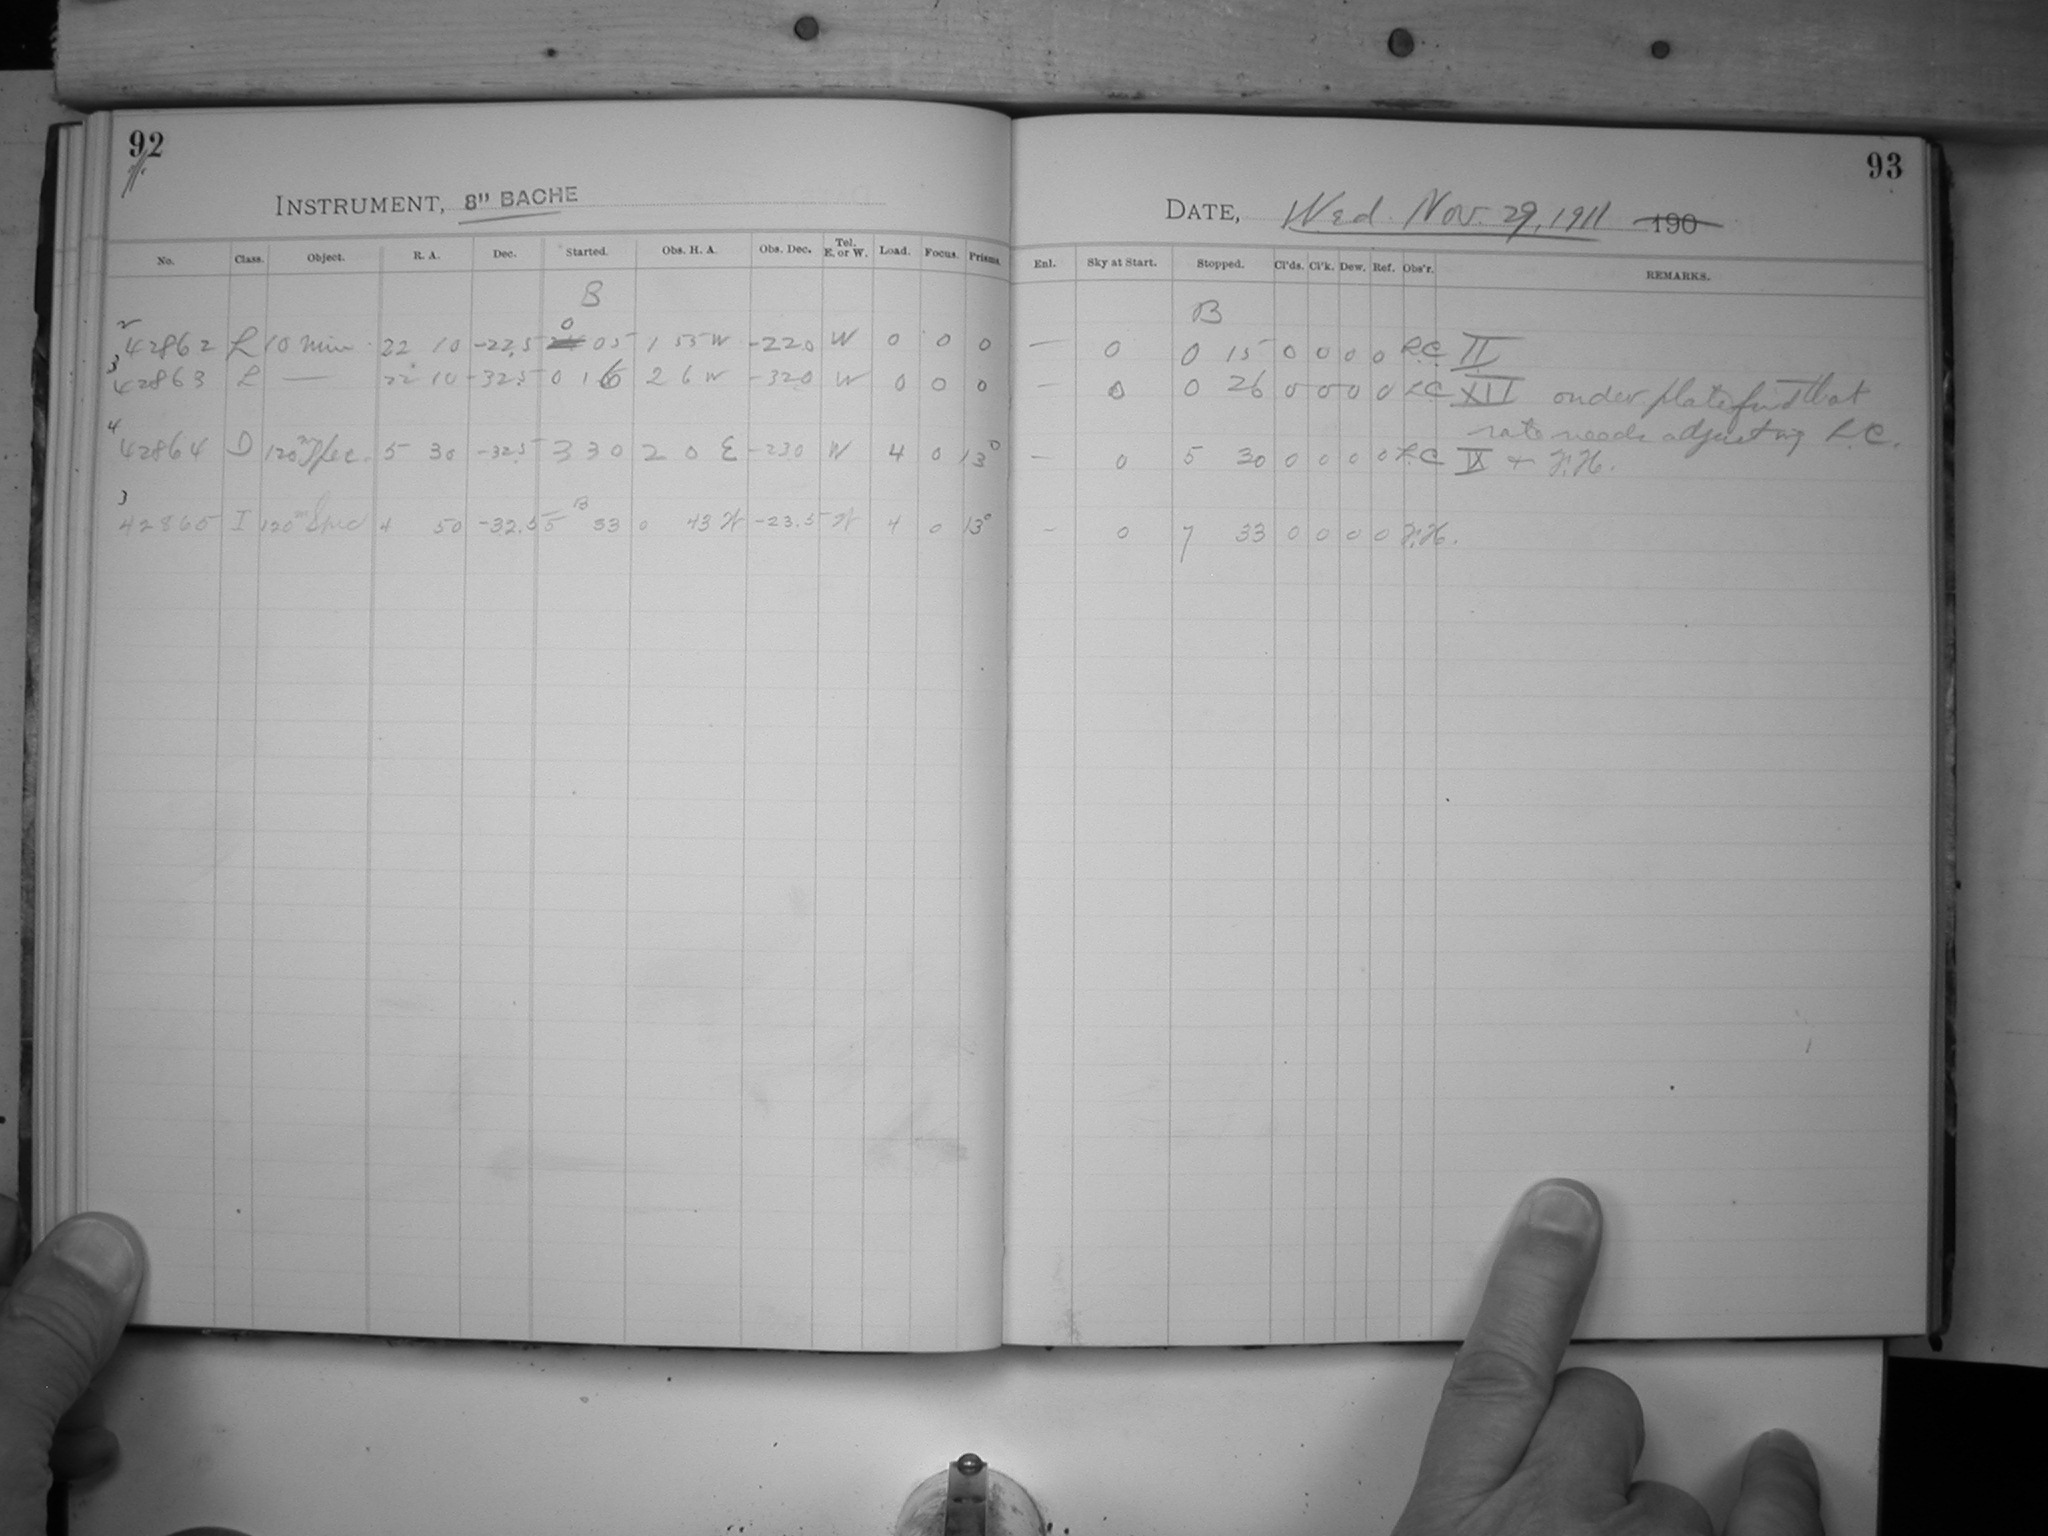 92
INSTRUMENT, 8" BACHE
No. Class. Object. R. A. Dec. Started. Obs. H. A. Obs. Dec. Tel. E. or W. Load. Focus. Prisms.
B
2 42862 L 10 min 22 10 -22.5 0 05 1 55 W -22.0 W 0 0 0
3 42863 L — 22 10 -32.5 0 16 2 6 W -32.0 W 0 0 0
4 42864 D 120m Spec. 5 30 -32.5 3 30 2 0 E -23.0 W 4 0 13°
B
3 42865 I 120m Spec 4 50 -32.5 5 33 0 43 W -23.5 W 4 0 13°
93
DATE, Wed. Nov. 29, 1911 190
Enl. Sky at Start. Stopped. Cl'ds. Cl'k. Dew. Ref. Obs'r. REMARKS.
B
— 0 0 15 0 0 0 0 L.C. II
— 0 0 26 0 0 0 0 L.C. XII under plate find that
rate needs adjusting L.C.
— 0 5 30 0 0 0 0 L.C. IX + F.H.
— 0 7 33 0 0 0 0 F.H.